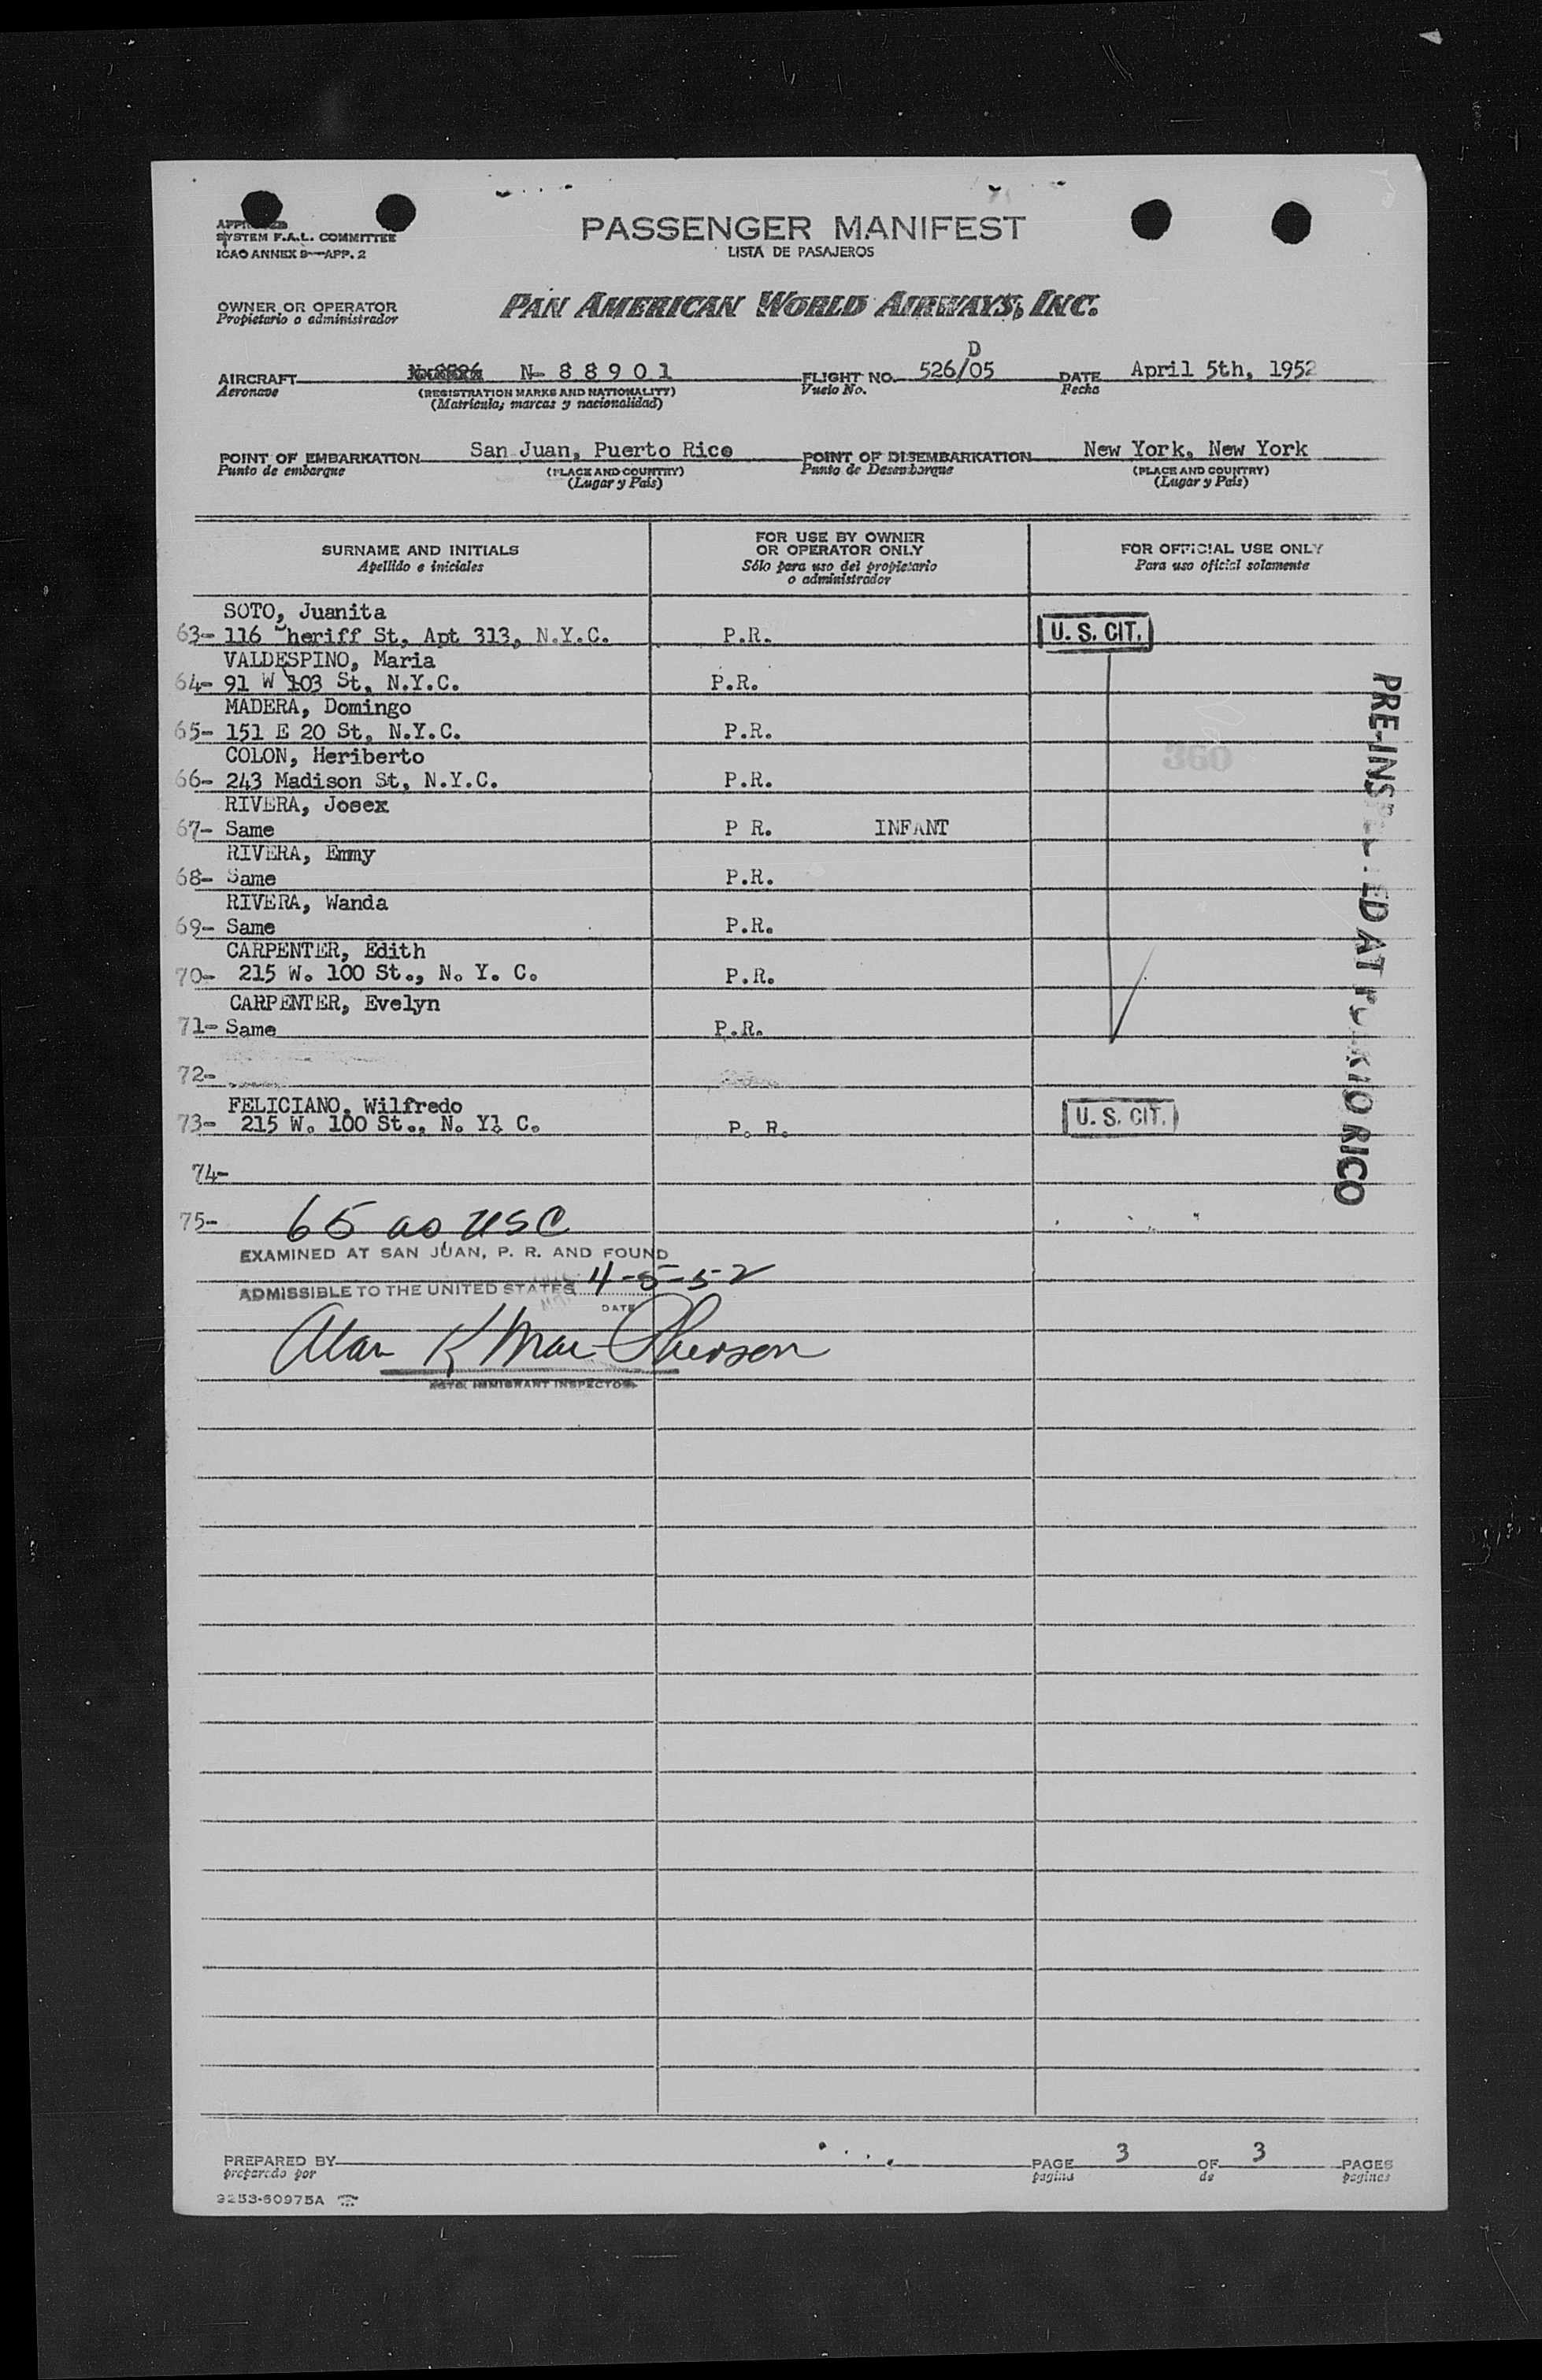 APPROVED
SYSTEM F.A.L. COMMITTEE
ICAO ANNEX 9—APP. 2
PASSENGER MANIFEST
LISTA DE PASAJEROS
OWNER OR OPERATOR
Propietario o administrador
PAN AMERICAN WORLD AIRWAYS, INC.
AIRCRAFT N- 8 8 9 0 1 FLIGHT NO. 526/05 D DATE April 5th, 1952
Aeronave (REGISTRATION MARKS AND NATIONALITY) Vuelo No. Fecha
(Matrícula; marcas y nacionalidad)
POINT OF EMBARKATION San Juan, Puerto Rico POINT OF DISEMBARKATION New York, New York
Punto de embarque (PLACE AND COUNTRY) Punto de Desembarque (PLACE AND COUNTRY)
(Lugar y País) (Lugar y País)
SURNAME AND INITIALS
Apellido e iniciales
FOR USE BY OWNER
OR OPERATOR ONLY
Sólo para uso del propietario
o administrador
FOR OFFICIAL USE ONLY
Para uso oficial solamente
SOTO, Juanita
63- 116 heriff St, Apt 313, N.Y.C. P.R. U. S. CIT.
VALDESPINO, Maria
64- 91 W 103 St, N.Y.C. P.R.
MADERA, Domingo
65- 151 E 20 St, N.Y.C. P.R.
COLON, Heriberto
66- 243 Madison St, N.Y.C. P.R.
360
RIVERA, Josex
67- Same P R. INFANT
RIVERA, Emmy
68- Same P.R.
RIVERA, Wanda
69- Same P.R.
CARPENTER, Edith
70- 215 W. 100 St., N. Y. C. P.R.
CARPENTER, Evelyn
71- Same P.R.
72-
FELICIANO, Wilfredo
73- 215 W. 100 St., N. Y. C. P. R. U. S. CIT.
74-
75- 65 as USC
EXAMINED AT SAN JUAN, P. R. AND FOUND
ADMISSIBLE TO THE UNITED STATES 4-5-52
DATE
Alan K MacPherson
IMMIGRANT INSPECTOR
PRE-INSPECTED AT PUERTO RICO
PREPARED BY PAGE 3 OF 3 PAGES
preparado por pagina de paginas
9253-60975A